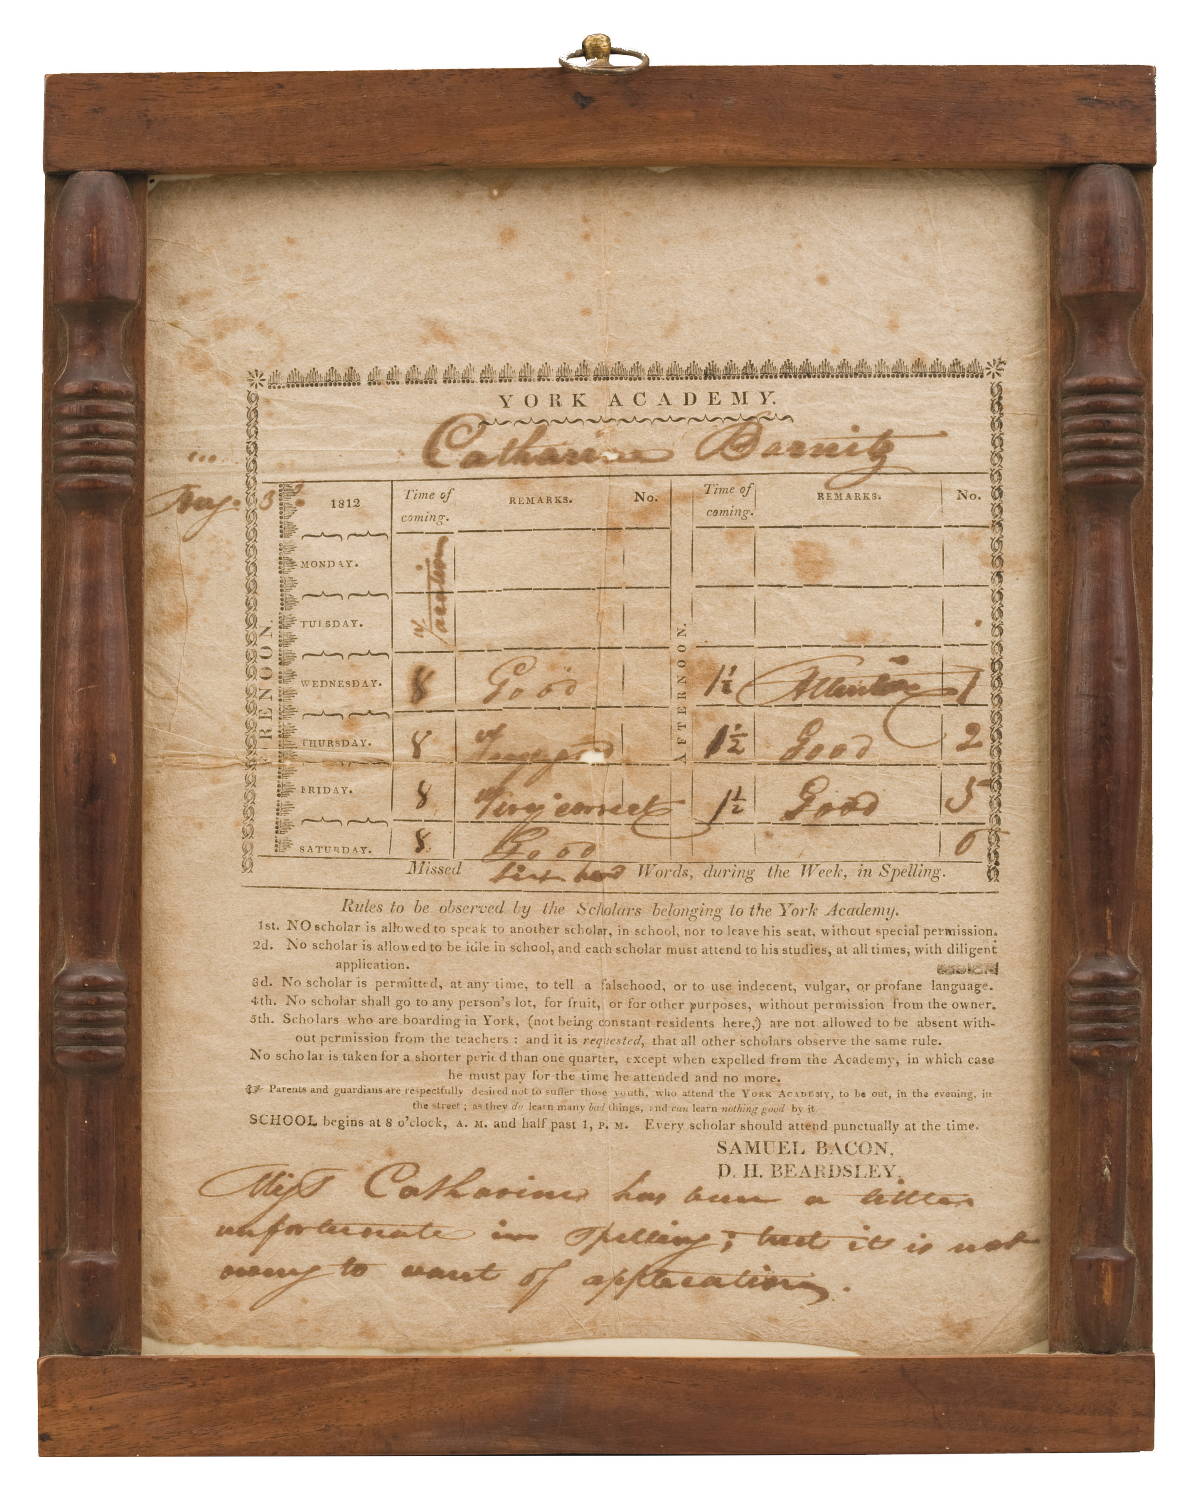 YORK ACADEMY.
Catharine Barnitz
Aug. 3d. 1812 Time of coming. REMARKS. No. Time of coming. REMARKS. No.
FORENOON. AFTERNOON.
MONDAY. Vacation
TUESDAY.
WEDNESDAY. 8 Good 1½ Attentive 1
THURSDAY. 8 Very good 1½ Good 2
FRIDAY. 8 Very correct 1½ Good 3
SATURDAY. 8 Good 0
Missed Words, during the Week, in Spelling.
Rules to be observed by the Scholars belonging to the York Academy.
1st. NO scholar is allowed to speak to another scholar, in school, nor to leave his seat, without special permission.
2d. No scholar is allowed to be idle in school, and each scholar must attend to his studies, at all times, with diligent
application.
3d. No scholar is permitted, at any time, to tell a falsehood, or to use indecent, vulgar, or profane language.
4th. No scholar shall go to any person's lot, for fruit, or for other purposes, without permission from the owner.
5th. Scholars who are boarding in York, (not being constant residents here,) are not allowed to be absent with-
out permission from the teachers : and it is requested, that all other scholars observe the same rule.
No scholar is taken for a shorter period than one quarter, except when expelled from the Academy, in which case
he must pay for the time he attended and no more.
☞ Parents and guardians are respectfully desired not to suffer those youth, who attend the YORK ACADEMY, to be out, in the evening, in
the street ; as they do learn many bad things, and can learn nothing good by it
SCHOOL begins at 8 o'clock, A. M. and half past 1, P. M. Every scholar should attend punctually at the time.
SAMUEL BACON,
D. H. BEARDSLEY,
Miss Catharine has been a little
unfortunate in spelling; but it is not
owing to want of application.